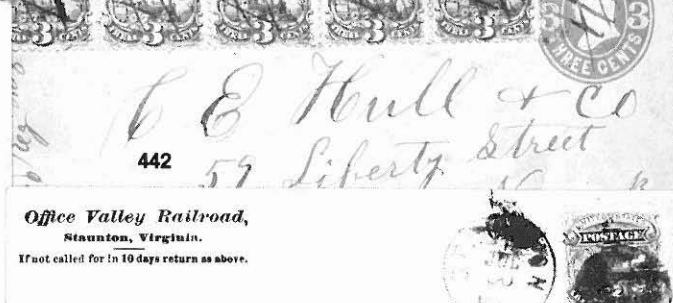 3 3 3 3 3 3 3
THREE CENTS
C E Hull & Co
442
59 Liberty Street
Office Valley Railroad,
Staunton, Virginia.
If not called for in 10 days return as above.
POSTAGE